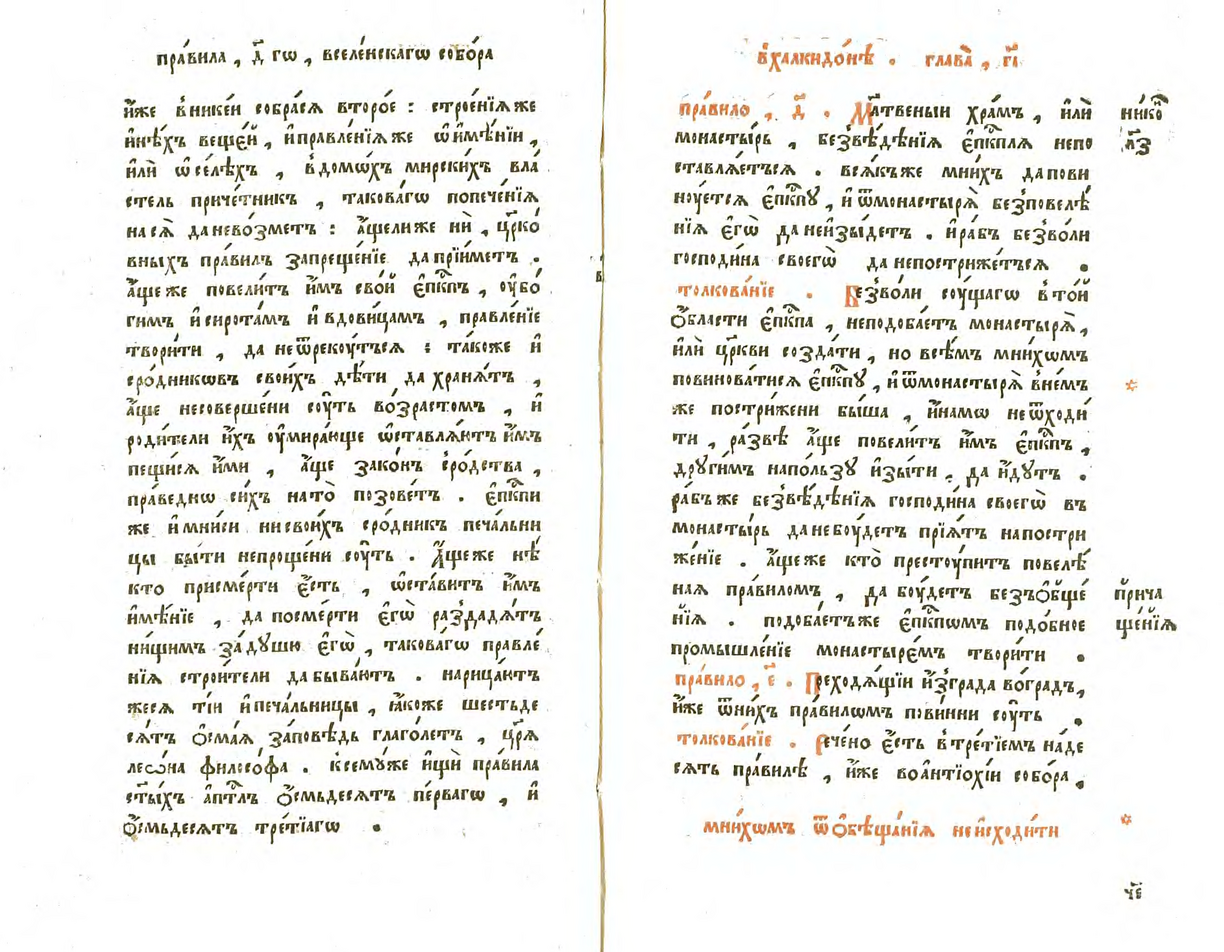 пра́вила , д҃ гѡ , вселе́нскагѡ собо́ра
и҆́же в̾нике́и собра́сѧ второ́е : строе́нїѧ же
и҆нѣ́хъ веще́й , и҆правле́нїѧ же ѡ҆и҆мѣ́нїи ,
и҆лѝ ѡ҆се́лѣхъ , в̾домѡ́хъ мирски́хъ вла
стель приче́тникъ , такова́гѡ попече́нїѧ
на сѧ̀ да нево́зметъ : а҆́ще ли же нѝ , цр҃ко́
вныхъ пра́вилъ запреще́нїе да прїи́метъ .
а҆́ще же повели́тъ и҆̀мъ сво́й є҆пⷭ҇кпъ , ᲂу҆бо́
гимъ и҆ сирота́мъ и҆ вдови́цамъ , правле́нїе
твори́ти , да не ѿреку́тсѧ : та́коже и҆
сро́дникѡвъ свои́хъ дѣ́ти да хранѧ́тъ ,
а҆́ще несоверше́ни сꙋ́ть во́зрастомъ , и҆
роди́тели и҆́хъ ᲂу҆мира́юще ѡ҆ставлѧ́ютъ и҆̀мъ
пещи́сѧ и҆́ми , а҆́ще зако́нъ сро́дства ,
пра́веднѡ си́хъ на то̀ позове́тъ . є҆пⷭ҇кпи
же и҆ мни́си ни свои́хъ сро́дникъ печа́льни
цы бы́ти непроще́ни сꙋ́ть . А҆́ще же нѣ́
кто присме́рти є҆́сть , ѡ҆ста́витъ и҆̀мъ
и҆мѣ́нїе , да посме́рти є҆гѡ̀ раздадѧ́тъ
ни́щимъ за́ дꙋшю є҆гѡ̀ , такова́гѡ правле́
нїѧ строи́тели да быва́ютъ . нарица́ютъ
жесѧ ті́и и҆ печа́льницы , ꙗ҆́коже шестьде
сѧ́тъ ѻ҆сма́ѧ за́повѣдь глаго́летъ , цр҃ѧ̀
лео́на фило́софа . ксемꙋ́же и҆щѝ пра́вила
ст҃ы́хъ а҆пⷭ҇тлъ ѻ҆́смьдесѧтъ пе́рвагѡ , и҆
ѻ҆́смьдесѧтъ тре́тїагѡ .
в̾халкидо́нѣ . глава̀ , гі҃
пра́вило , д҃ . Мл҃твеныи хра́мъ , и҆лѝ
монасты́рь , без̾вѣ́дѣнїѧ є҆пⷭ҇кплѧ непо
ставлѧ́етсѧ . всѧ́къ же мни́хъ да пови
нꙋ́етсѧ є҆пⷭ҇кпꙋ , и҆ ѿмонастырѧ̀ безповелѣ́
нїѧ є҆гѡ̀ да неи҆зы́детъ . и҆ ра́бъ без̾во́ли
господи́на своегѡ̀ да непострижетсѧ .
толкова́нїе . Без̾во́ли сꙋ́щагѡ в̾то́й
ѻ҆́бласти є҆пⷭ҇кпа , неподоба́етъ монастырѧ̀ ,
и҆лѝ цр҃кви созда́ти , но всѣ́мъ мни́хѡмъ
повинова́тисѧ є҆пⷭ҇кпꙋ , и҆ ѿмонастырѧ̀ вне́мъ
же постри́жени бы́ша , и҆на́мѡ не ѿходи́
ти , ра́звѣ а҆́ще повели́тъ и҆̀мъ є҆пⷭ҇кпъ ,
други́мъ напо́льзꙋ и҆зы́ти , да и҆́дꙋтъ .
ра́бъ же без̾вѣ́дѣнїѧ господи́на своегѡ̀ въ
монасты́рь да не бꙋ́детъ прїѧ́тъ на постри
же́нїе . а҆́ще же кто̀ престꙋ́питъ повелѣ́
наѧ пра́виломъ , да бꙋ́детъ безъѻ҆́бще
нїѧ . подоба́етъ же є҆пⷭ҇кпѡмъ подо́бное
промышле́нїе монастыре́мъ твори́ти .
пра́вило , є҃ . Преходѧ́щїи и҆з̾гра́да во́градъ ,
и҆́же ѿни́хъ пра́вилѡмъ пови́нни сꙋ́ть .
толкова́нїе . Рече́но є҆́сть в̾тре́тїемъ на́де
сѧть пра́вилѣ , и҆́же воа҆нтїохі́и собо́ра .
мни́хѡмъ ѿѻ҆бѣща́нїѧ не и҆сходи́ти
нико́
л҃з
*
прича
ще́нїѧ
*
ч҃е